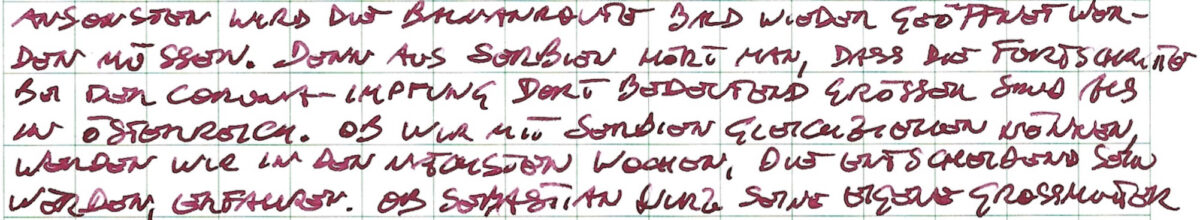 ANSONSTEN WIRD DIE BALKANROUTE BALD WIEDER GEÖFFNET WER-
DEN MÜSSEN. DENN AUS SERBIEN HÖRT MAN, DASS DIE FORTSCHRITTE
BEI DER CORONA-IMPFUNG DORT BEDEUTEND GRÖSSER SIND ALS
IN ÖSTERREICH. OB WIR MIT SERBIEN GLEICHZIEHEN KÖNNEN,
WERDEN WIR IN DEN NÄCHSTEN WOCHEN, DIE ENTSCHEIDEND SEIN
WERDEN, ERFAHREN. OB SEBASTIAN KURZ SEINE EIGENE GROSSMUTTER